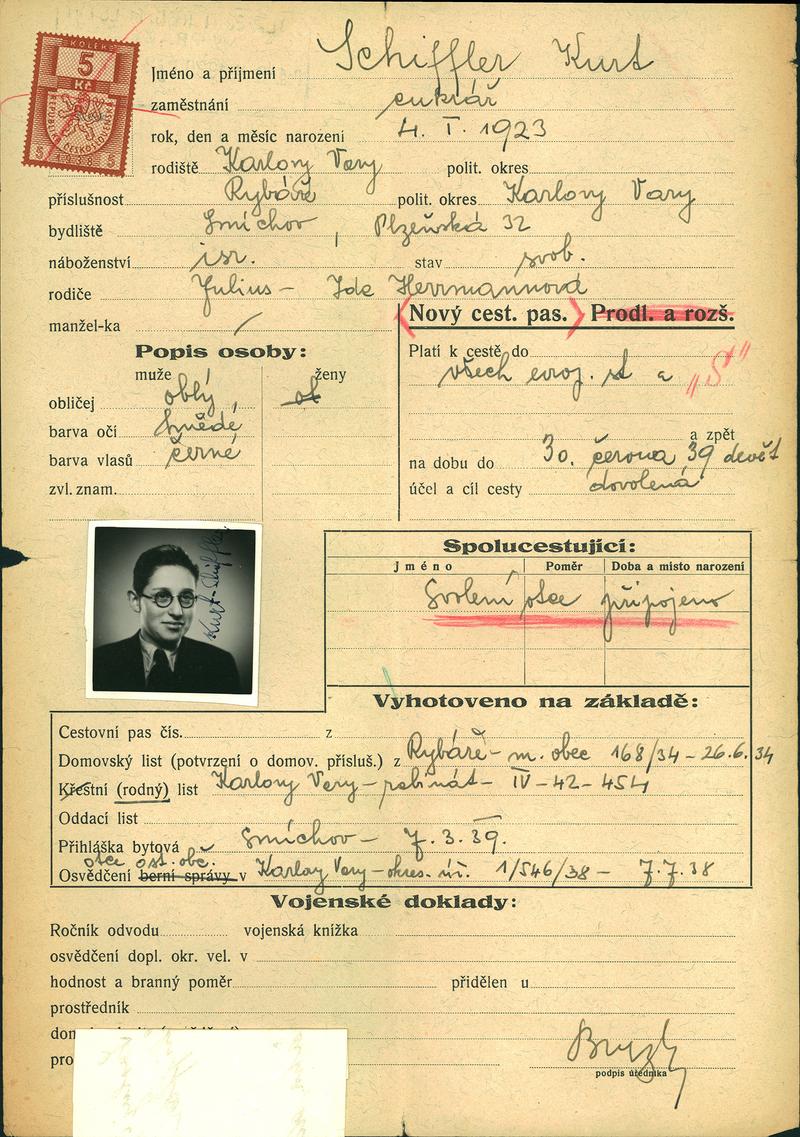 KOLEK
5
Kč
REPUBLIKA ČESKOSLOVENSKÁ
5 1938 5
Jméno a příjmení Schiffler Kurt
zaměstnání cukrář
rok, den a měsíc narození 4. I. 1923
rodiště Karlovy Vary polit. okres
příslušnost Rybáře polit. okres Karlovy Vary
bydliště Smíchov, Plzeňská 32
náboženství isr. stav svob.
rodiče Julius - Ida Herrmannová
manžel-ka /
Nový cest. pas. Prodl. a rozš.
Popis osoby:
muže ženy
obličej oblý, ob
barva očí hnědé,
barva vlasů černé
zvl. znam.
Platí k cestě do
všech evrop. st a "S"
a zpět
na dobu do 30. června 39 devět
účel a cíl cesty dovolená
Kurt Schiffler
Spolucestující:
jméno Poměr Doba a místo narození
Svolení otce připojeno
Vyhotoveno na základě:
Cestovní pas čís. z
Domovský list (potvrzení o domov. přísluš.) z Rybáře - m. obec 168/34 - 26.6.34
Křestní (rodný) list Karlovy Vary - rabinát - IV - 42 - 454
Oddací list
Přihláška bytová Smíchov - 7.3.39.
otce ost. obč.
Osvědčení berní správy v Karlovy Vary - okres. úř. 1/546/38 - 7.7.38
Vojenské doklady:
Ročník odvodu vojenská knížka
osvědčení dopl. okr. vel. v
hodnost a branný poměr přidělen u
prostředník
pro
podpis úředníka